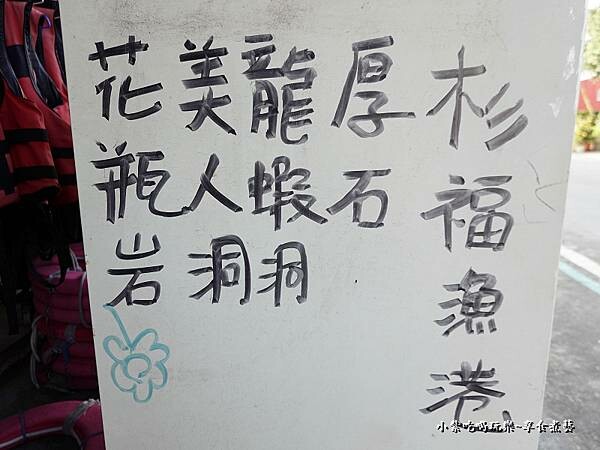 杉福漁港
厚石
龍蝦洞
美人洞
花瓶岩
小紫吃好玩樂~享食煮藝